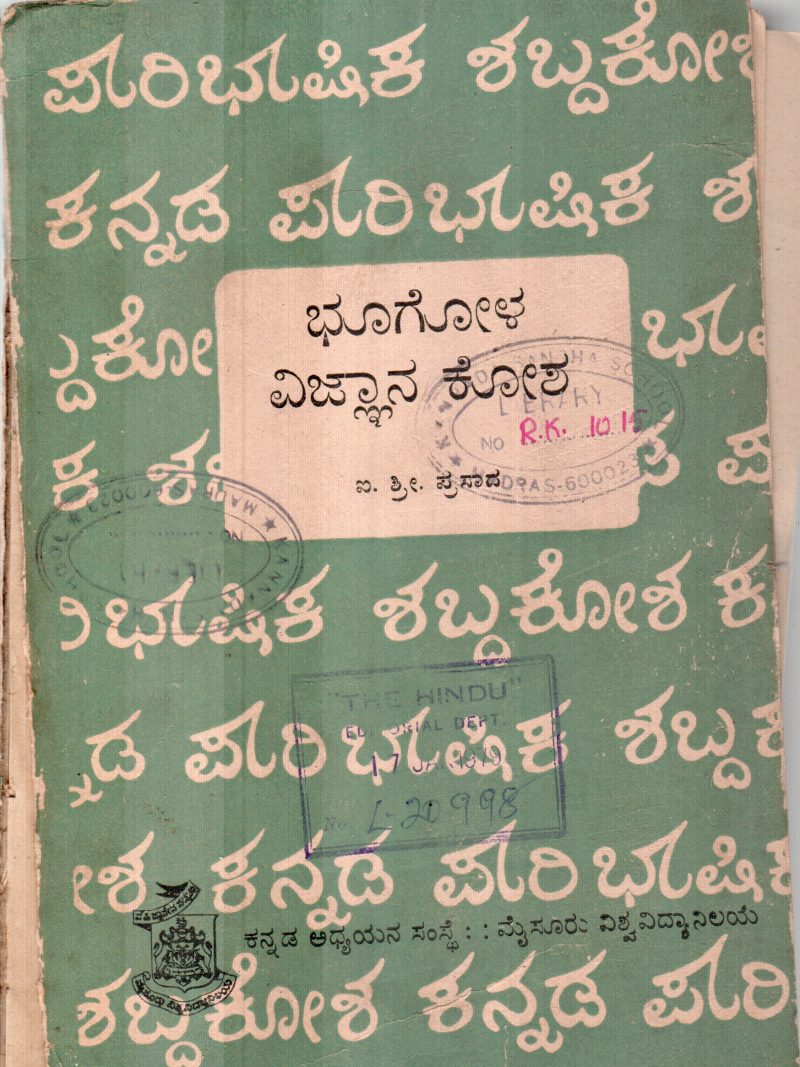 ಪಾರಿಭಾಷಿಕ ಶಬ್ದಕೋಶ
ಕನ್ನಡ ಪಾರಿಭಾಷಿಕ ಶ
ಬ್ದಕೋ ಭಾಷಿ
ಭೂಗೋಳ
ವಿಜ್ಞಾನ ಕೋಶ
ಐ. ಶ್ರೀ. ಪ್ರಸಾದ
SCHOOL
LIBRARY
NO R.K. 1015
MADRAS-600023
ಕ ಶ ಪ
MADRAS-600023
NO
ರಿಭಾಷಿಕ ಶಬ್ದಕೋಶ ಕ
"THE HINDU"
EDITORIAL DEPT.
17 JAN 1979
No. L-20998
ನ್ನಡ ಪಾರಿಭಾಷಿಕ ಶಬ್ದಕ
ೋಶ ಕನ್ನಡ ಪಾರಿಭಾಷಿಕ
ಕನ್ನಡ ಅಧ್ಯಯನ ಸಂಸ್ಥೆ : : ಮೈಸೂರು ವಿಶ್ವವಿದ್ಯಾನಿಲಯ
ಶಬ್ದಕೋಶ ಕನ್ನಡ ಪಾರಿ